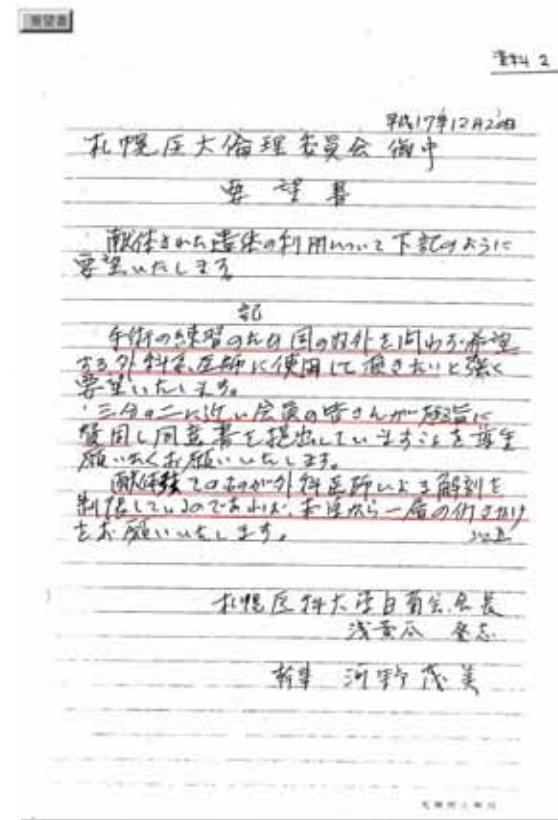 要望書
資料 2
平成17年12月20日
札幌医大倫理委員会 御中
要望書
献体された遺体の利用について下記のように
要望いたします
記
手術の練習のため国の内外を問わず希望
する外科系医師に使用して頂きたいと強く
要望いたします。
三分の二に近い会員の皆さんが趣旨に
賛同し同意書を提出していますことを
願いたくお願いいたします。
献体 そのものが外科医師による解剖を
制限しているのであれば、 から一層の
をお願いいたします。
以上
札幌医科大学白菊会会長
浅黄瓜
幹事 河野茂美